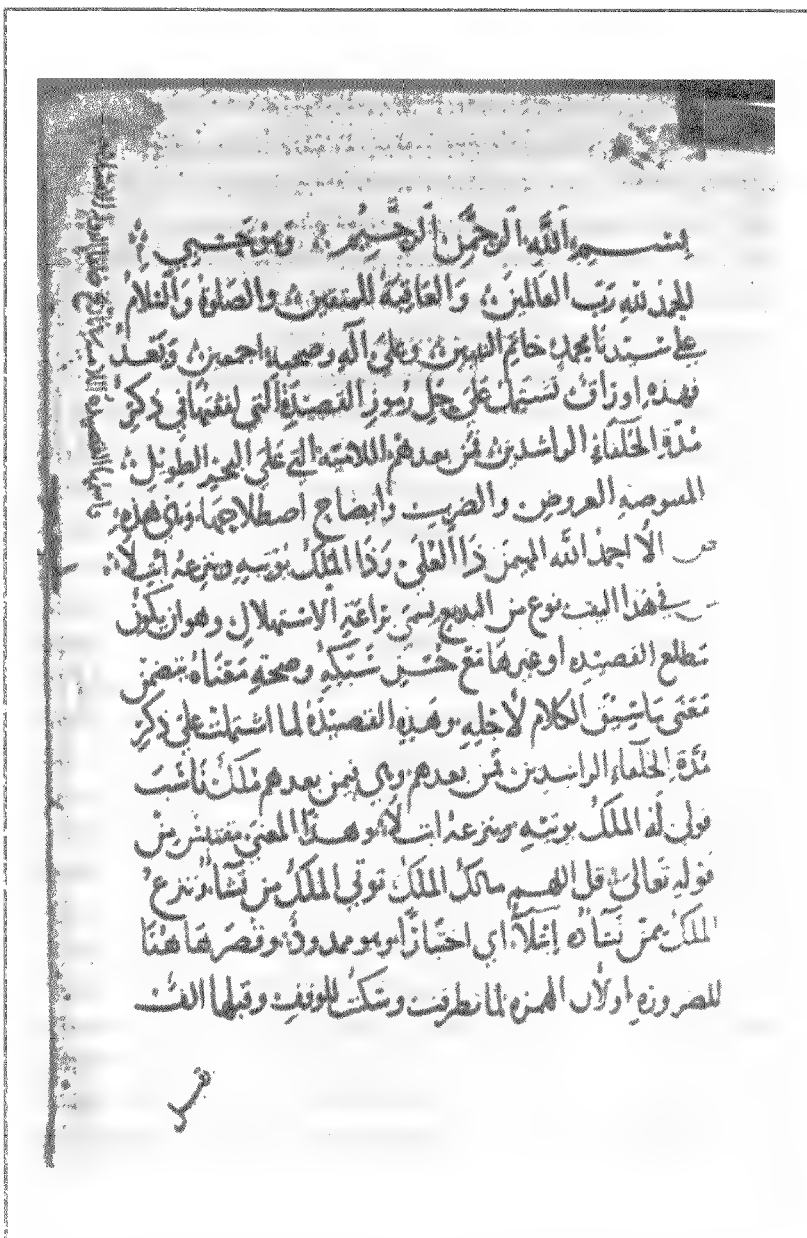 بسم الله الرحمن الرحيم وهو حسبي
الحمد لله رب العالمين والعاقبة للمتقين والصلوة والسلام
على سيدنا محمد خاتم النبيين وعلى آله وصحبه اجمعين وبعد
فهذه اوراق تشتمل على حل رموز القصيدة التي نظمتها في ذكر
مدة الخلفاء الراشدين فمن بعدهم اللامية التي على البحر الطويل
العروض والضرب وايضاح اصطلاحها وهي هذه
ص الا احمد الله المهيمن ذا العلى وذا الملك يوتيه وينزعه ابتلا
ش في هذا البيت نوع من البديع يسمى براعة الاستهلال وهو ان يكون
مطلع القصيدة أو غيرها مع حسن سبكه وصحة معناه يتضمن
معنى ما سيق الكلام لاجله وهذه القصيدة لما اشتملت على ذكر
مدة الخلفاء الراشدين فمن بعدهم وهي فيمن بعدهم ملك ناسب
قولي له الملك يوتيه وينزعه ابتلا وهذا المعنى مقتبس من
قوله تعالى قل اللهم مالك الملك توتي الملك من تشاء وتنزع
الملك ممن تشاء ابتلآء اي اختبارا وهو ممدود وقصر هاهنا
للضرورة أو لأن الهمزة لما تطرفت وسكنت للوقف وقبلها الف